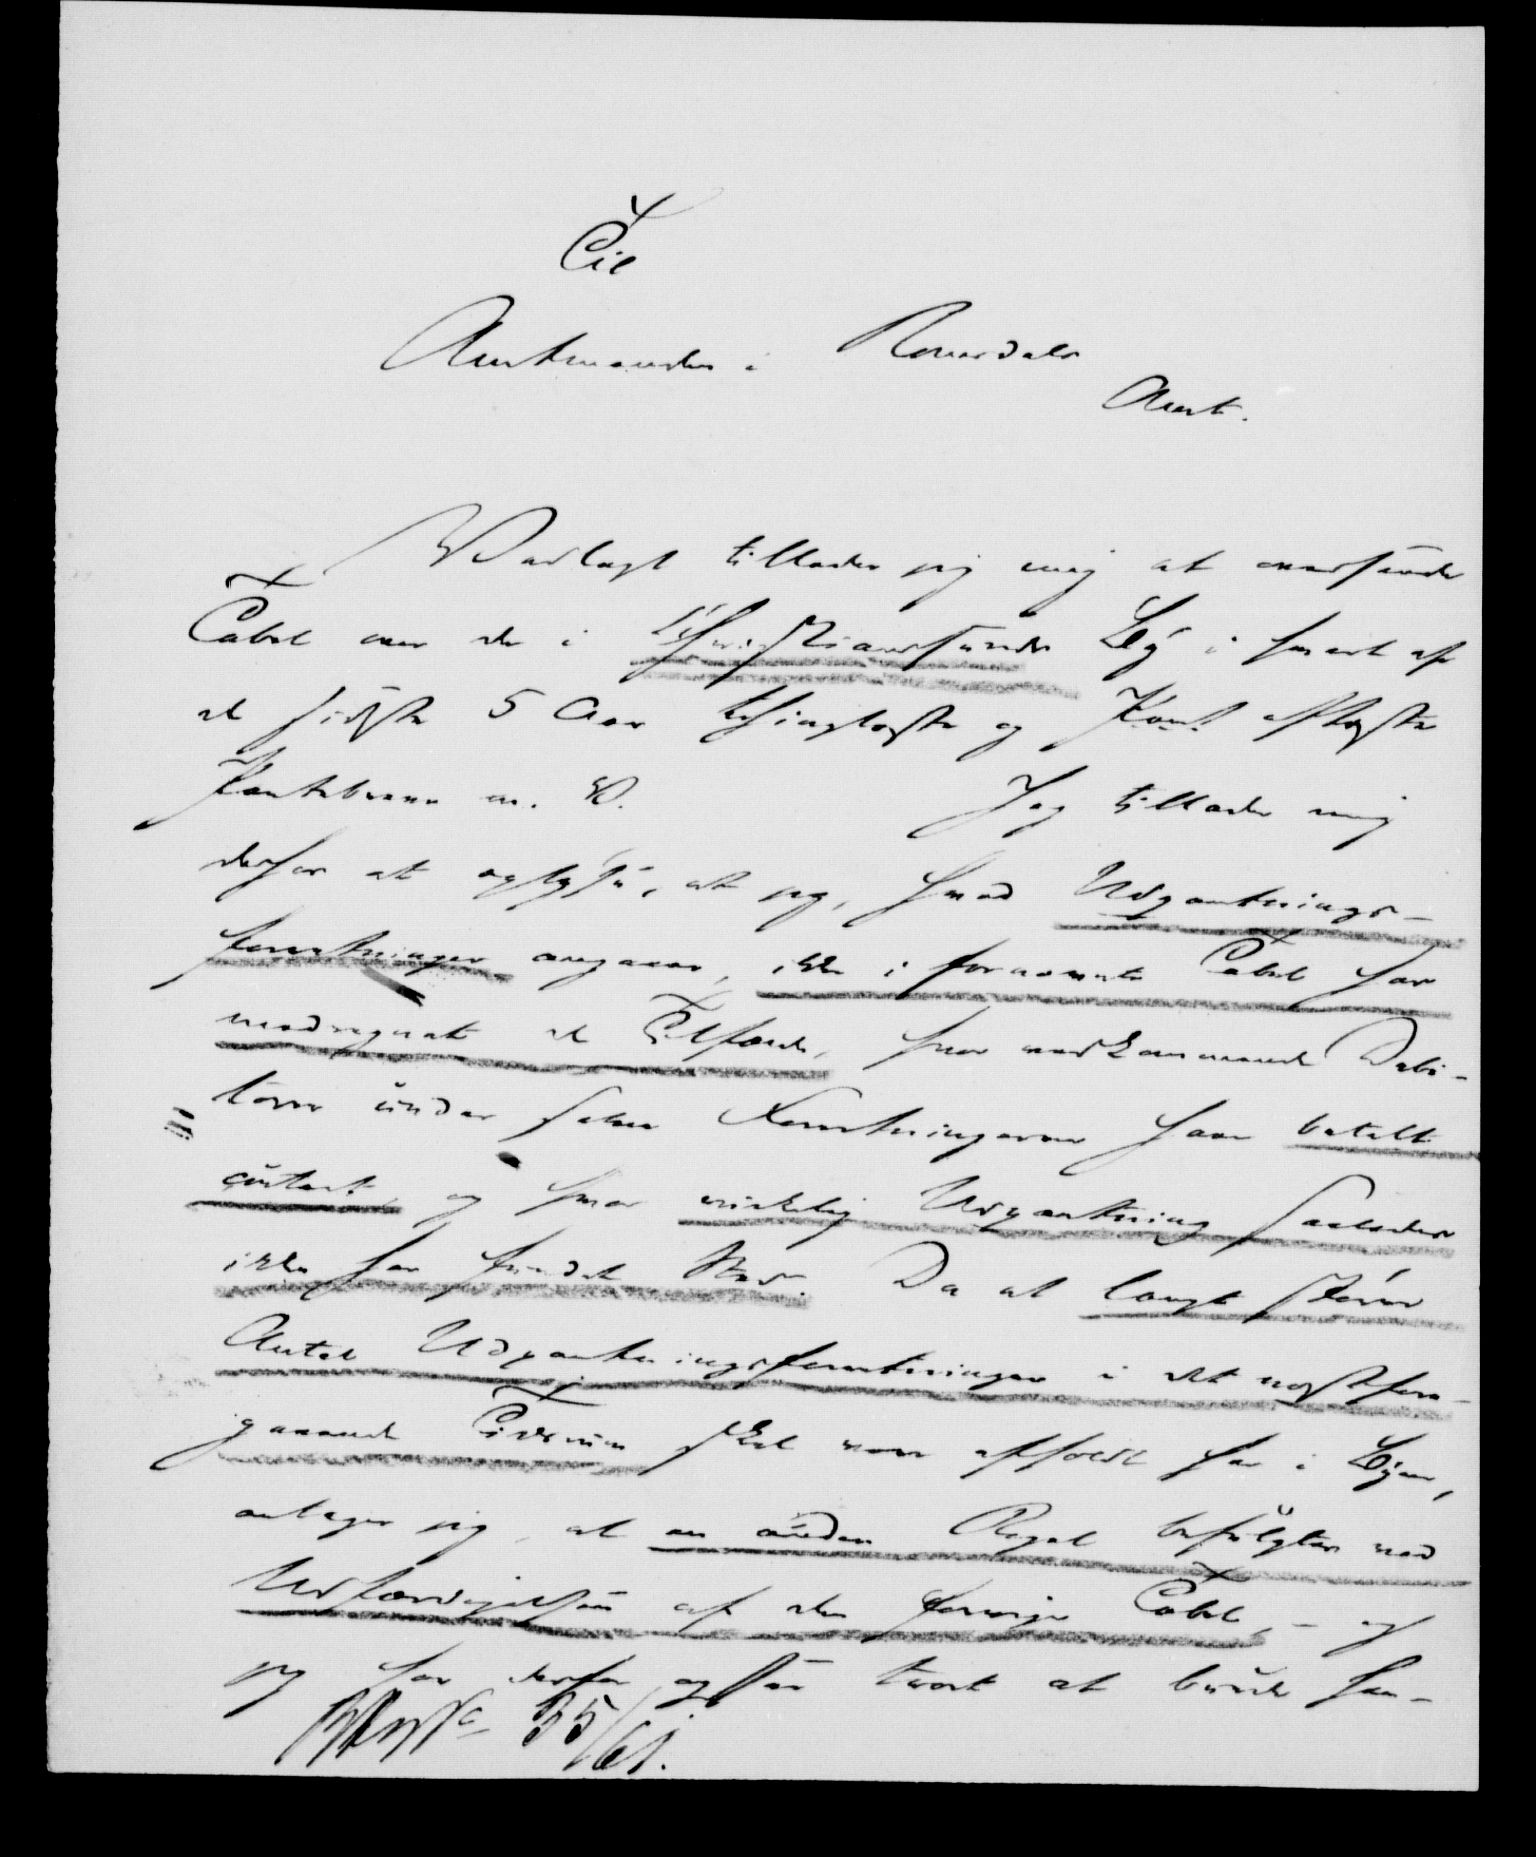 Til
Amtmanden i Romsdals
Amt.
Vedlagt tillader jeg mig at oversende
Tabel over de i Christianssunds By i hvert af
de sidste 5 Aar thinglæste og aflæste
Pantebreve m. V. Jeg tillader mig
derhos at oplyse, at jeg, hvad Udpantnings-
forretninger angaaer, ikke i fornævnte Tabel har
medregnet de Tilfælde, hvor vedkommende Debi-
torer under selve Forretningerne have betalt
contant, og hvor virkelig Udpantning saaledes
ikke har fundet Sted. Da et langt større
Antal Udpantningsforretninger i det næstfore-
gaaende Tidsrum skal være afholdt her i Byen,
antager jeg, at en anden Regel befulgtes ved
Udfærdigelsen af den forrige Tabel, – og
jeg har derfor ogsaa troet at burde
35/61.